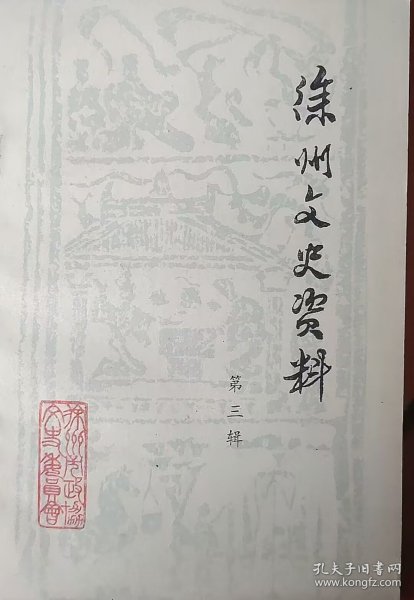 徐州文史资料
第三辑
徐州市政協
文史委員會
孔夫子旧书网
www.kongfz.com